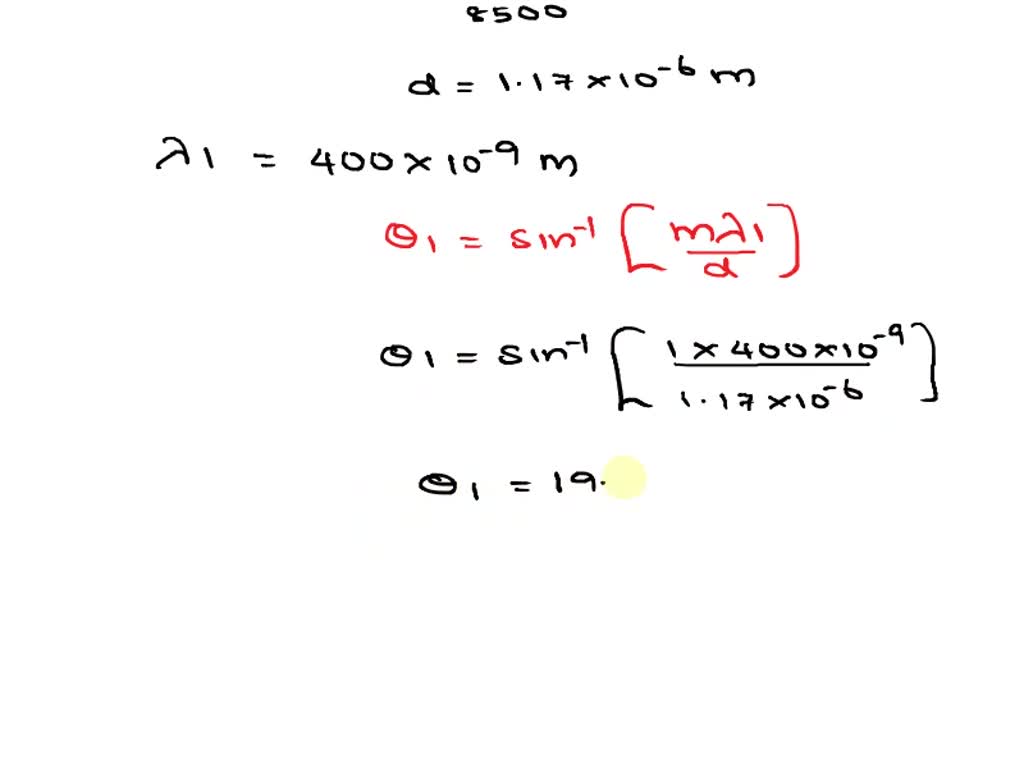 8500
d = 1.17 × 10⁻⁶ m
λ1 = 400 × 10⁻⁹ m
θ1 = sin⁻¹ [mλ1 / d]
θ1 = sin⁻¹ [1 × 400 × 10⁻⁹ / 1.17 × 10⁻⁶]
θ1 = 19.